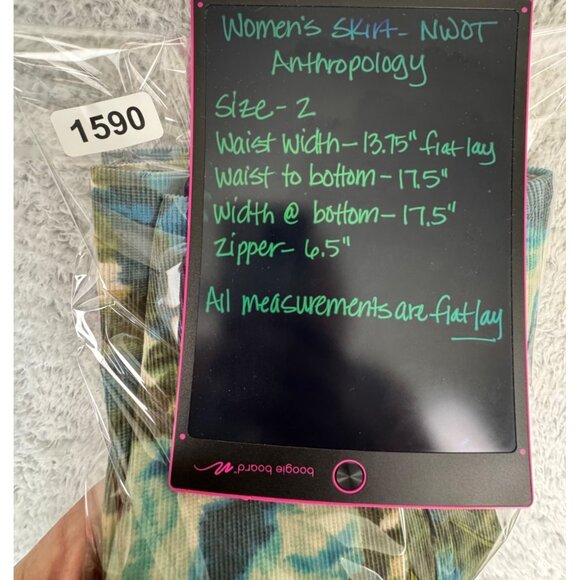 Women's Skirt - NWOT
Anthropology
Size - 2
Waist width - 13.75" flat lay
Waist to bottom - 17.5"
Width @ bottom - 17.5"
Zipper - 6.5"
All measurements are flat lay
1590
boogie board™